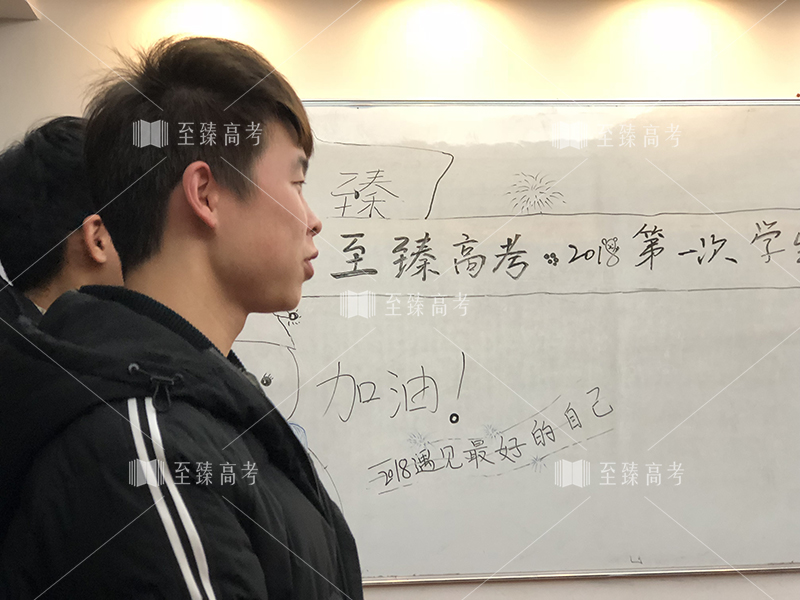 臻
至臻高考 2018第一次学生
加油!
2018遇见最好的自己
至臻高考
至臻高考
至臻高考
至臻高考
至臻高考